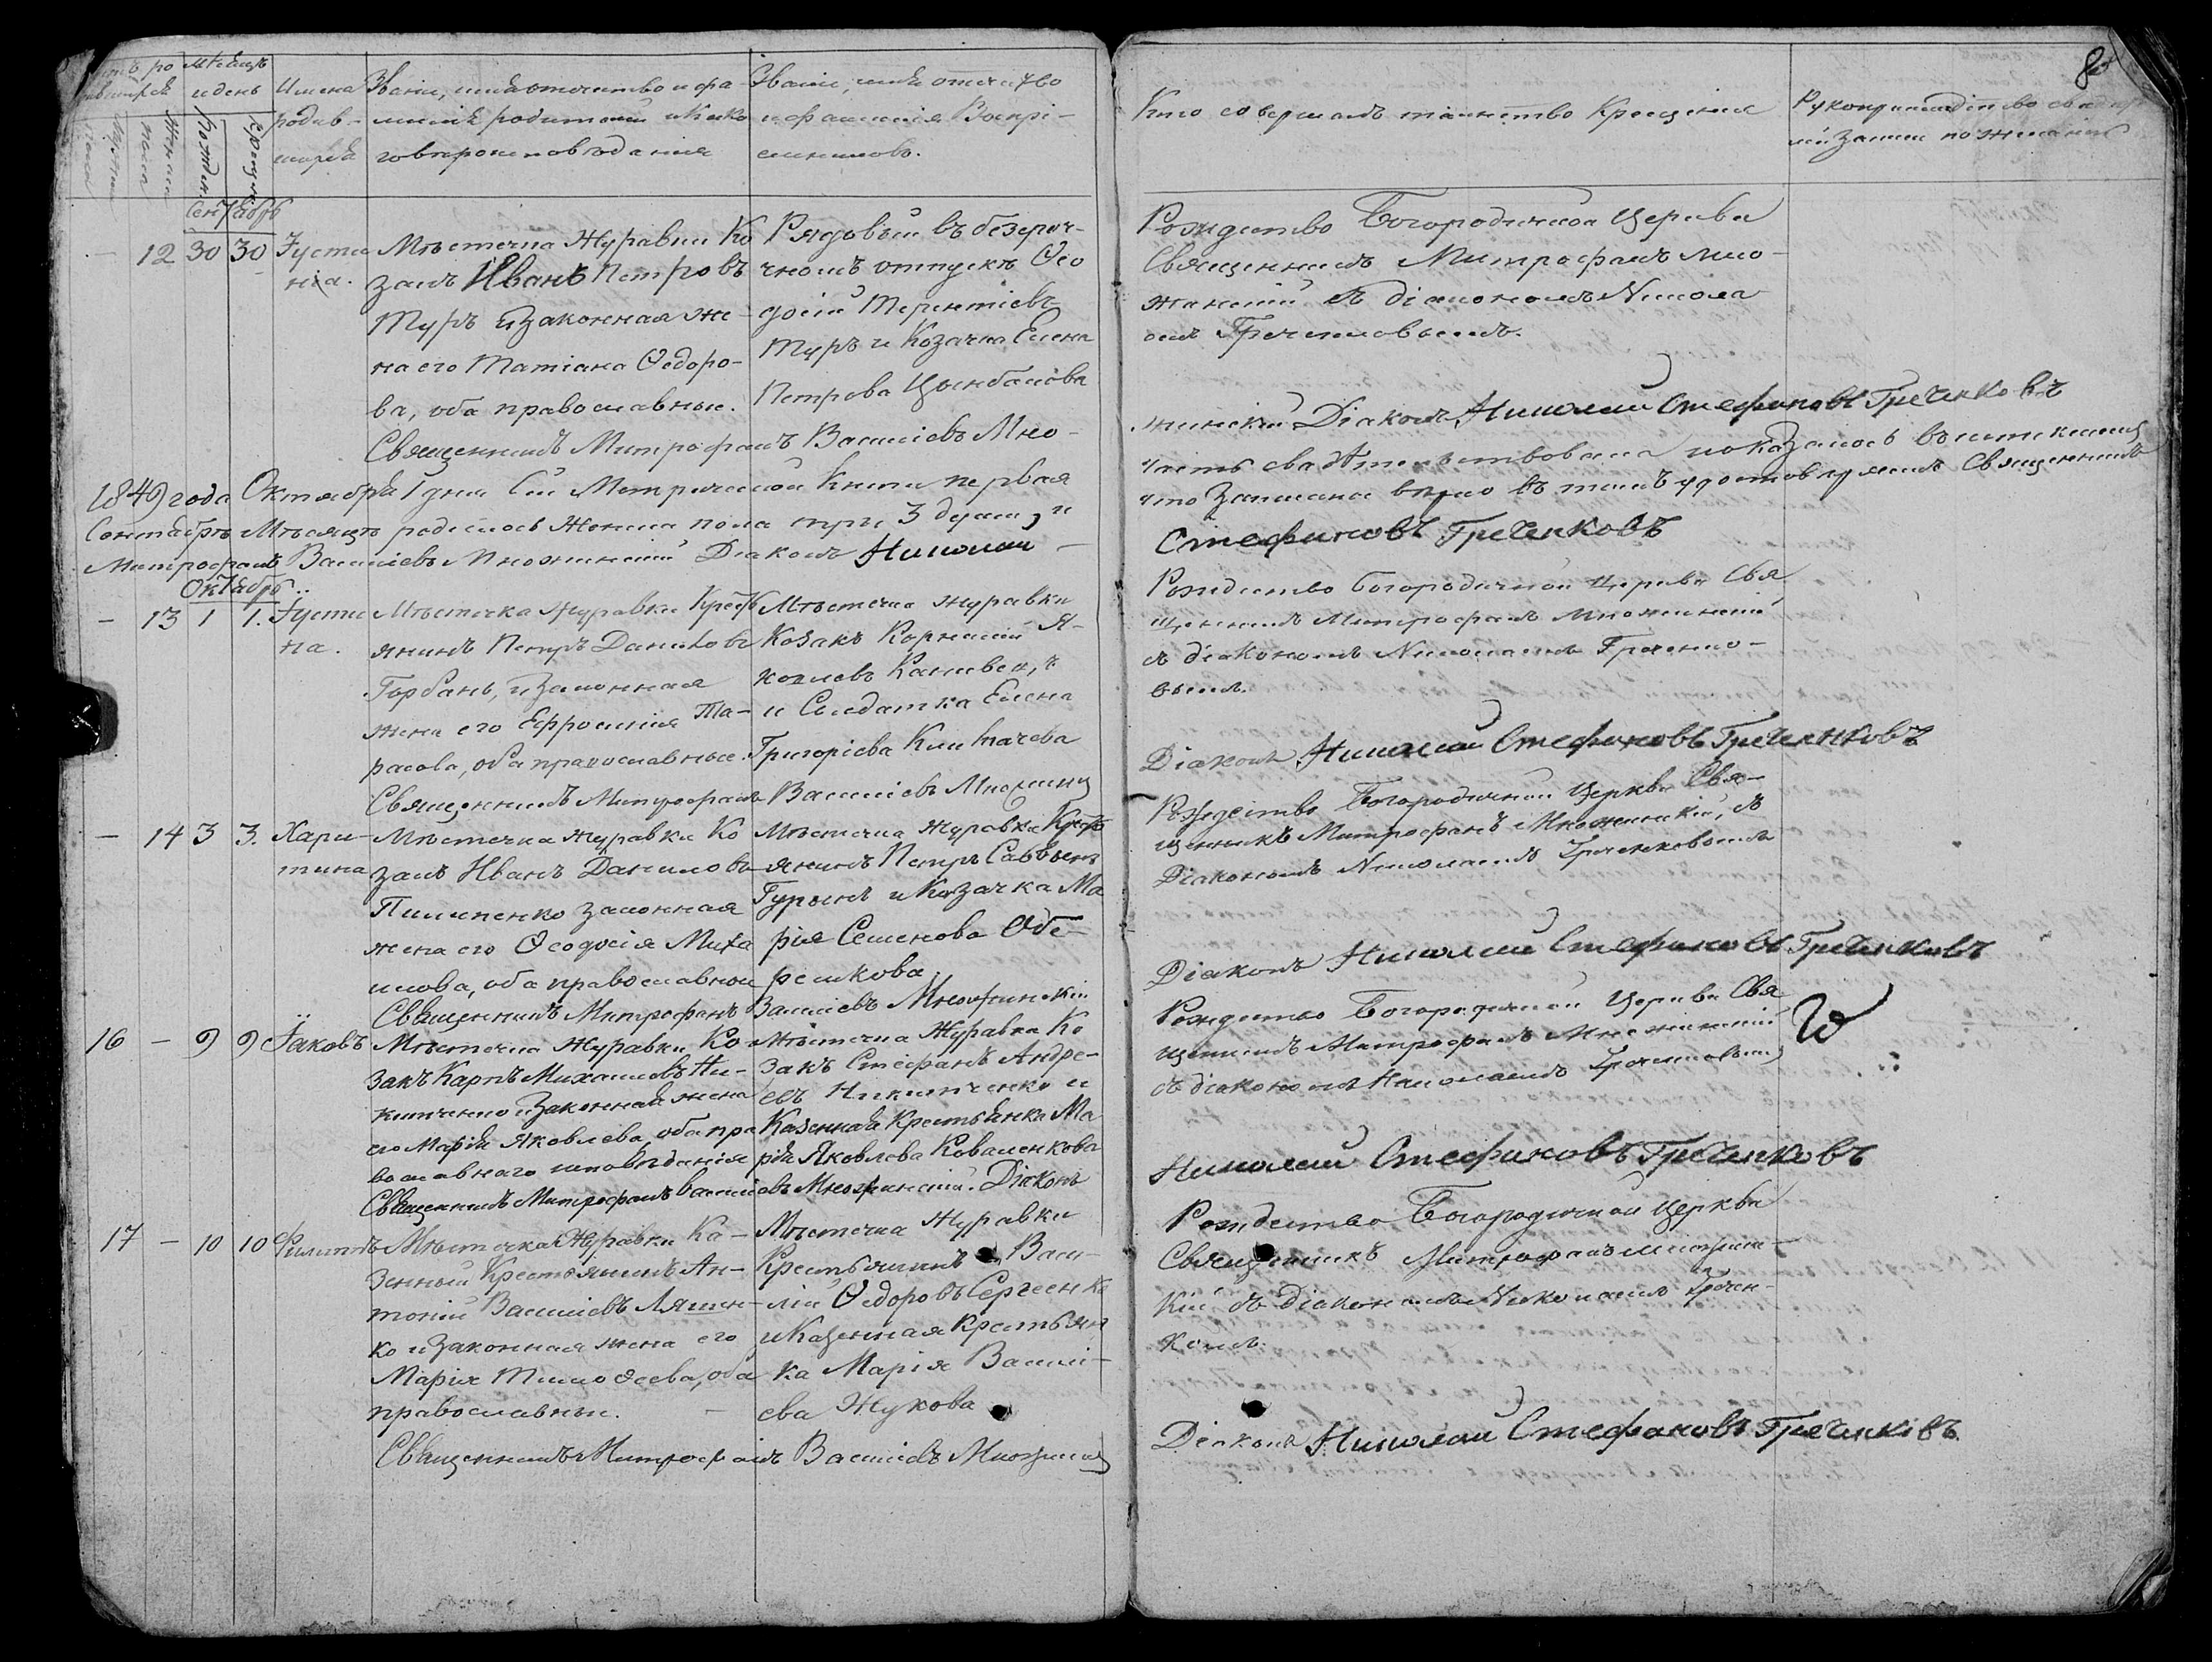 8
мѣсяцъ
и день
Имена
родив-
шихся
Званіе, имя отчество и фа-
милія родителей и како
го вѣроисповѣданія
Званіе, имя отчество
и фамилія Воспрі-
емниковъ.
Кто совершалъ таинство Крещенія
Рукоприкладство свидѣ
записи по желанію
Сентябрь
12 30 30 Іусти
нıа.
Мѣстечка Журавки Ко
закъ Иванъ Петровъ
Туръ и законная же-
на его Татіана Ѳедоро-
ва, оба православные.
Рядовый въ безсроч-
чномъ отпускѣ Ѳео
досій Терентіевъ
Туръ и Козачка Елена
Петрова Цымбалова
Рождество Богородичной Церкви
Священникъ Митрофанъ Мно-
жинскій съ діакономъ Никола
емъ Греченковымъ.
Священникъ Митрофанъ Василіевъ Мно-
жинскій Діаконъ Николай Стефановъ Греченковъ
1849 года Октября 1 дня Сій Метрической Книги первая
часть свидѣтельствована и оказалось въ
Сентябрѣ Мѣсяцѣ родилось Женска пола три 3 души, и
что записана вѣрно въ томъ удостовѣряемъ Священникъ
Митрофанъ Василіевъ Множинскій Діаконъ Николай
Стефановъ Греченковъ
Октябрь
13 1 1. Іусти
на.
Мѣстечка Журавки Кресть
янинъ Петръ Даниловъ
Горбань, и законная
жена его Ефросинія Та-
расова, оба православные.
Мѣстечка Журавки
Козакъ Корнилій Я-
ковлевъ
и Солдатка Елена
Григоріева
Рождество Богородичной Церкви Свя
щенникъ Митрофанъ Множинскій
съ діакономъ Николаемъ Греченко-
вымъ.
Священникъ Митрофанъ Василіевъ Множинскій
Діаконъ Николай Стефановъ Греченковъ
14 3 3. Хари-
тина
Мѣстечка Журавки Ко
закъ Иванъ Даниловъ
Пилипенко законная
жена его Ѳеодосія Миха
илова, оба православные
Мѣстечка Журавки Кресть
янинъ Петръ Саввинъ
Гурынъ и Козачка Ма
рія Семенова Обе-
ремкова.
Рождество Богородичной Церкви Свя-
щенникъ Митрофанъ Множинскій, съ
Діакономъ Николаемъ Греченковымъ
Священникъ Митрофанъ Василіевъ Множинскій
Діаконъ Николай Стефановъ Греченковъ
16 — 9 9 Іаковъ
Мѣстечка Журавки Ко
закъ Карпъ Михаиловъ Ни-
китченко и законная жена
его Марія Яковлева, оба пра
вославнаго исповѣданія
Мѣстечка Журавки Ко
закъ Стефанъ Андре-
евъ Никитченко и
Казенная Крестьянка Ма
рія Яковлева Коваленкова
Рождество Богородичной Церкви Свя
щенникъ Митрофанъ Множинскій
съ діакономъ Николаемъ Греченковымъ
Священникъ Митрофанъ Василіевъ Множинскій. Діаконъ
Николай Стефановъ Греченковъ
17 — 10 10 Филиппъ
Мѣстечка Журавки Ка-
зенный Крестьянинъ Ан-
тоній Василіевъ Ляшен-
ко и законная жена его
Марія Тимоѳеева, оба
православные.
Мѣстечка Журавки
Крестьянинъ Васи-
лій Ѳедоровъ Сергеенко
и Казенная Крестьян
ка Марія Василі-
ева Жукова
Рождество Богородичной Церкви
Священникъ Митрофанъ Множинс-
кій съ діакономъ Николаемъ Гречен-
комъ.
Священникъ Митрофанъ Василіевъ Множинскій
Діаконъ Николай Стефановъ Греченковъ.